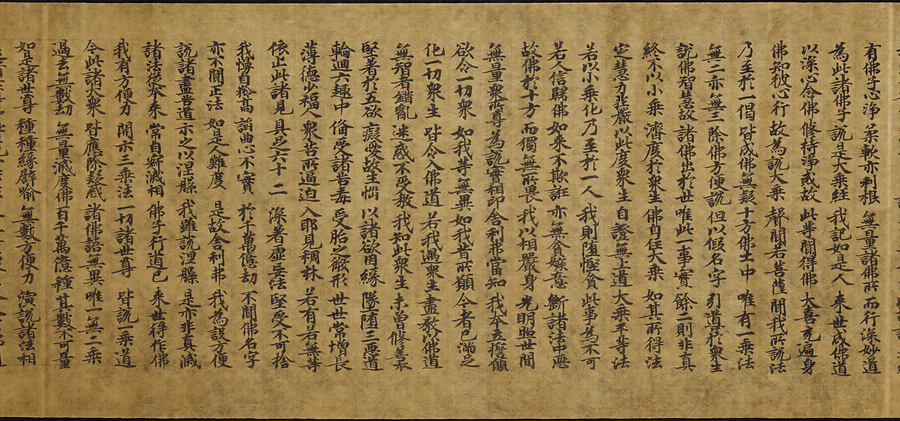 有佛子心淨 柔軟亦利根 無量諸佛所 而行深妙道
為此諸佛子 說是大乘經 我記如是人 來世成佛道
以深心念佛 修持淨戒故 此等聞得佛 大喜充遍身
佛知彼心行 故為說大乘 聲聞若菩薩 聞我所說法
乃至於一偈 皆成佛無疑 十方佛土中 唯有一乘法
無二亦無三 除佛方便說 但以假名字 引導於眾生
說佛智慧故 諸佛出於世 唯此一事實 餘二則非真
終不以小乘 濟度於眾生 佛自住大乘 如其所得法
定慧力莊嚴 以此度眾生 自證無上道 大乘平等法
若以小乘化 乃至於一人 我則墮慳貪 此事為不可
若人信歸佛 如來不欺誑 亦無貪嫉意 斷諸法中惡
故佛於十方 而獨無所畏 我以相嚴身 光明照世間
無量眾所尊 為說實相印 舍利弗當知 我本立誓願
欲令一切眾 如我等無異 如我昔所願 今者已滿足
化一切眾生 皆令入佛道 若我遇眾生 盡教以佛道
無智者錯亂 迷惑不受教 我知此眾生 未曾修善本
堅著於五欲 癡愛故生惱 以諸欲因緣 墜墮三惡道
輪迴六趣中 備受諸苦毒 受胎之微形 世世常增長
薄德少福人 眾苦所逼迫 入邪見稠林 若有若無等
依止此諸見 具足六十二 深著虛妄法 堅受不可捨
我慢自矜高 諂曲心不實 於千萬億劫 不聞佛名字
亦不聞正法 如是人難度 是故舍利弗 我為設方便
說諸盡苦道 示之以涅槃 我雖說涅槃 是亦非真滅
諸法從本來 常自寂滅相 佛子行道已 來世得作佛
我有方便力 開示三乘法 一切諸世尊 皆說一乘道
今此諸大眾 皆應除疑惑 諸佛語無異 唯一無二乘
過去無數劫 無量滅度佛 百千萬億種 其數不可量
如是諸世尊 種種緣譬喻 無數方便力 演說諸法相